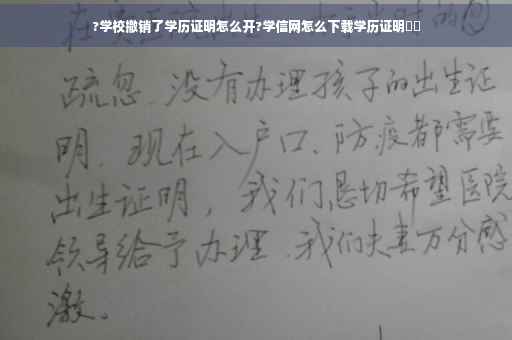 ?学校撤销了学历证明怎么开?学信网怎么下载学历证明
疏忽.没有办理孩子的出生证
明.现在入户口、防疫都需要
出生证明，我们恳切希望医院
领导给予办理.我们夫妻万分感
激。